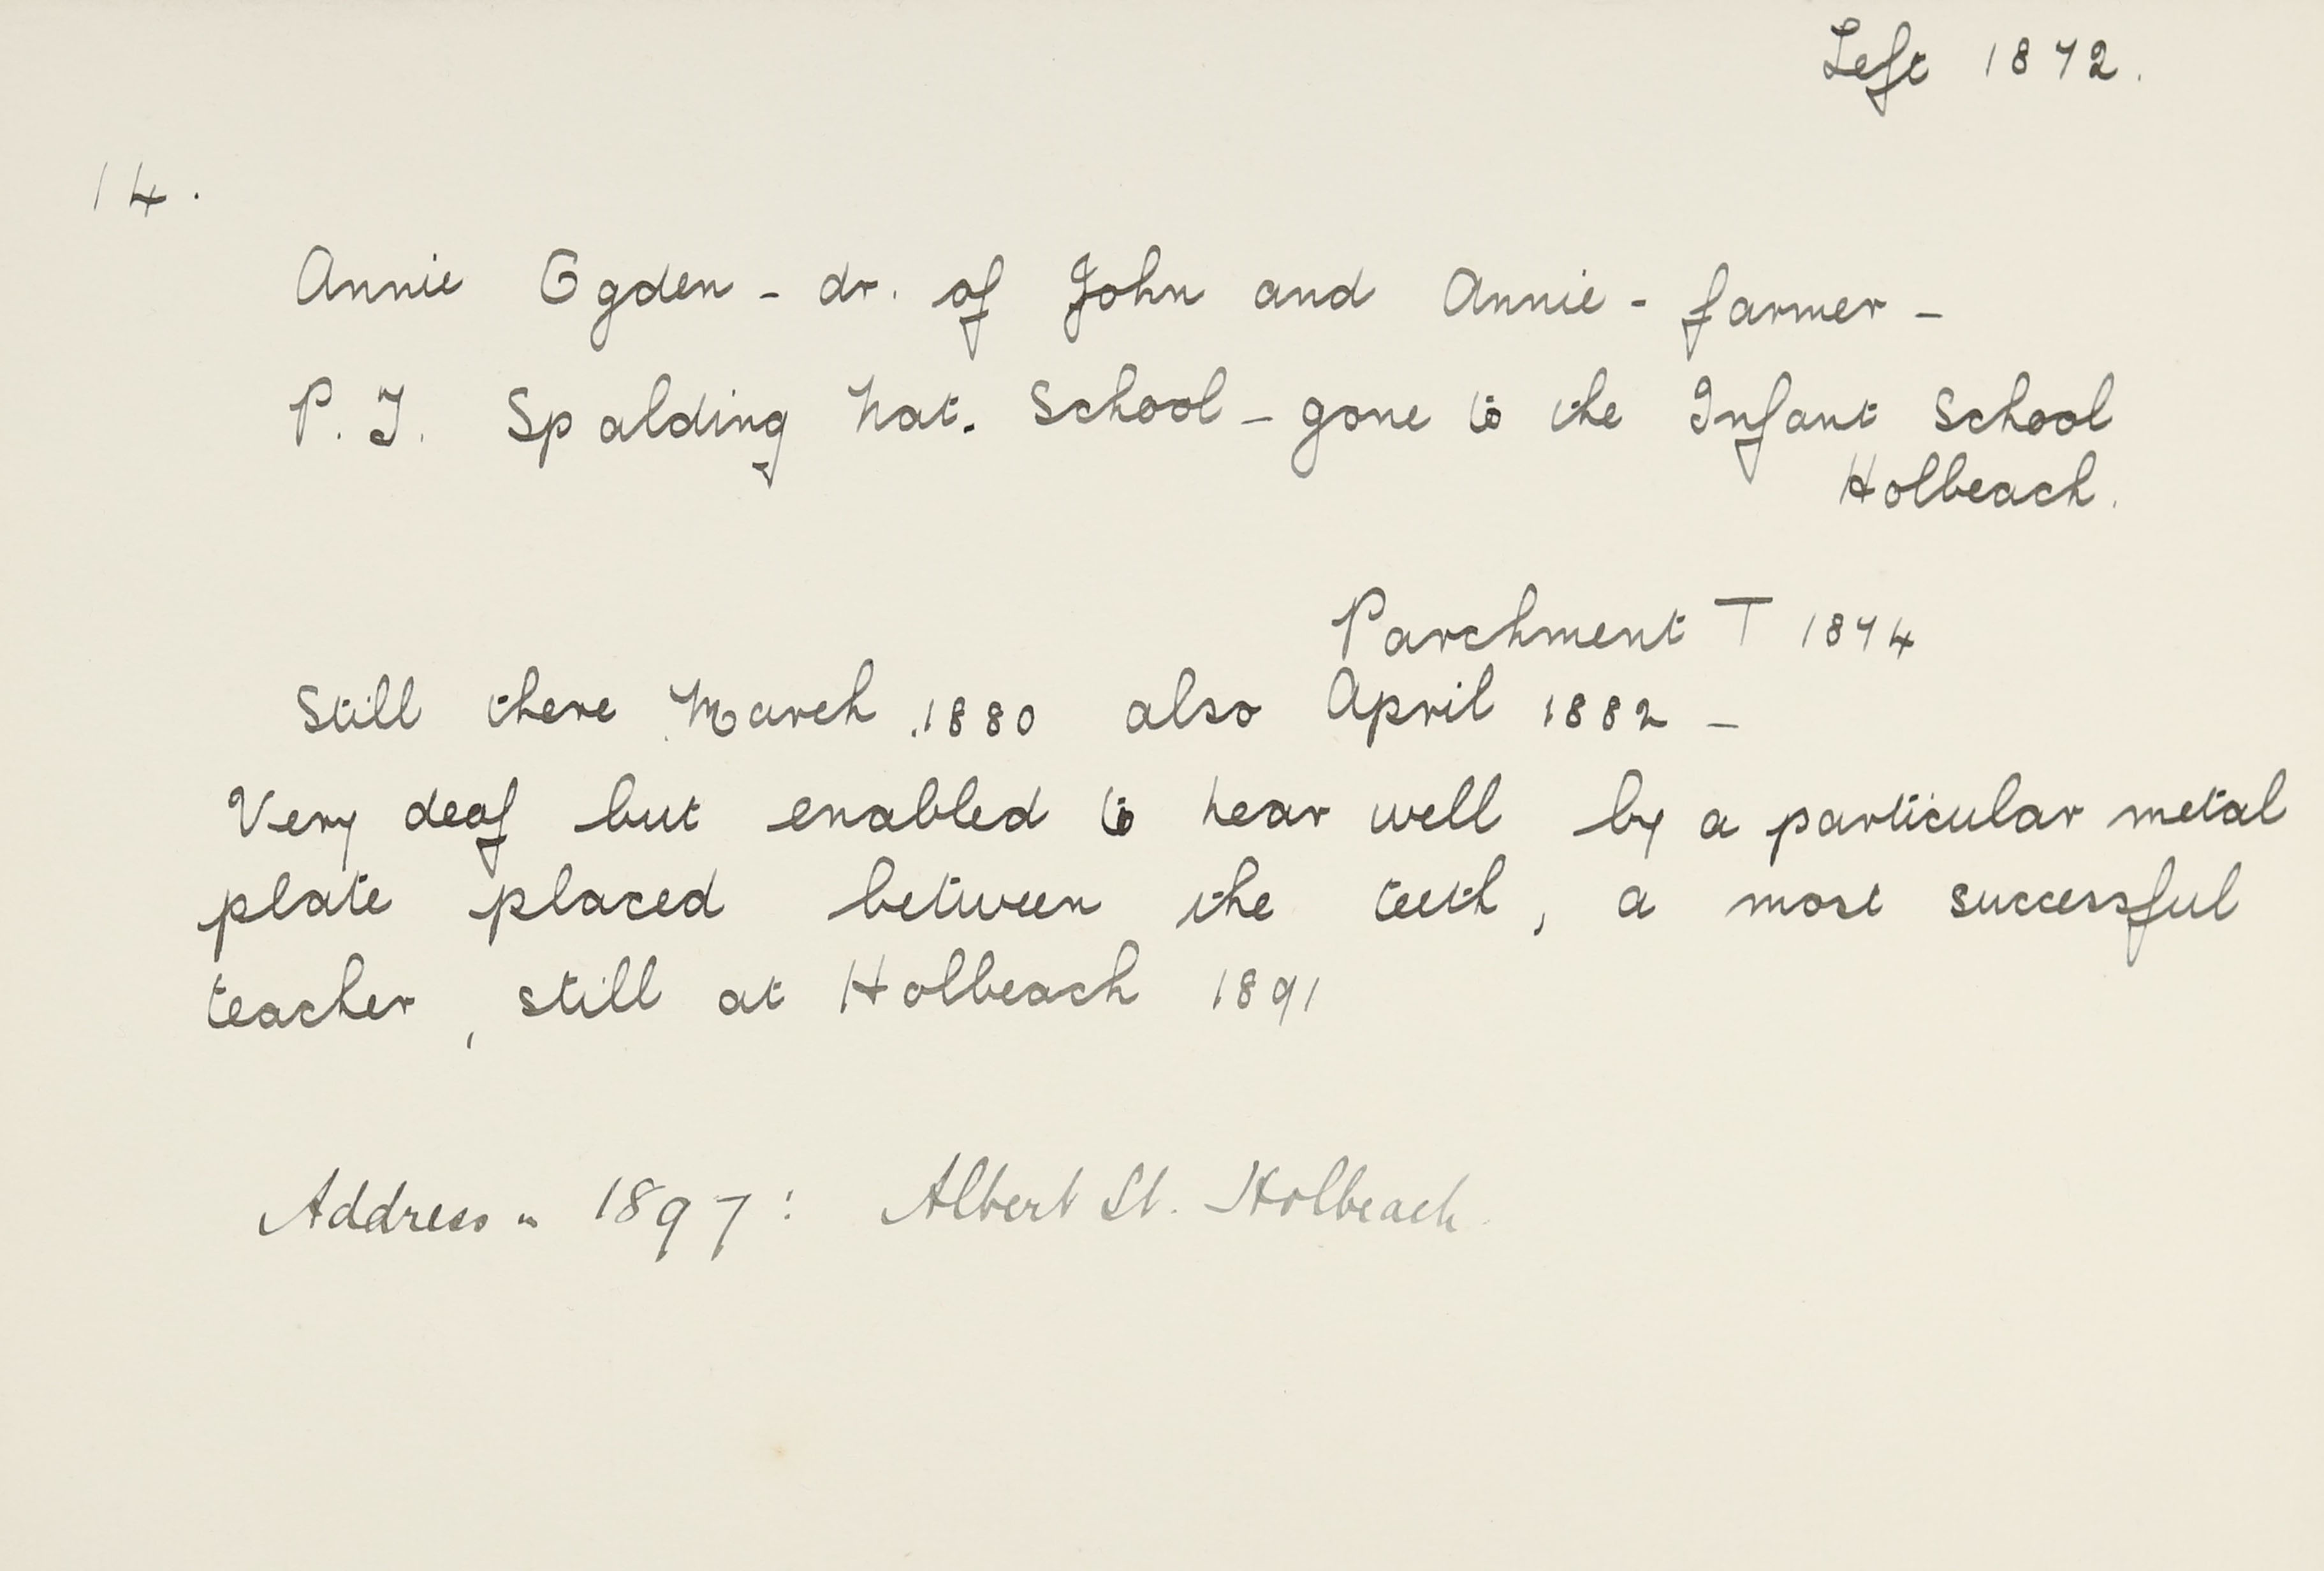 Left 1872.
14.
Annie Ogden - dr. of John and Annie - farmer -
P.T. Spalding Nat. School - gone to the Infant School
Holbeach.
Parchment T 1874
Still there March 1880 also April 1882 -
Very deaf but enabled to hear well by a particular metal
plate placed between the teeth, a most successful
teacher, still at Holbeach 1891
Address - 1897: Albert St. Holbeach